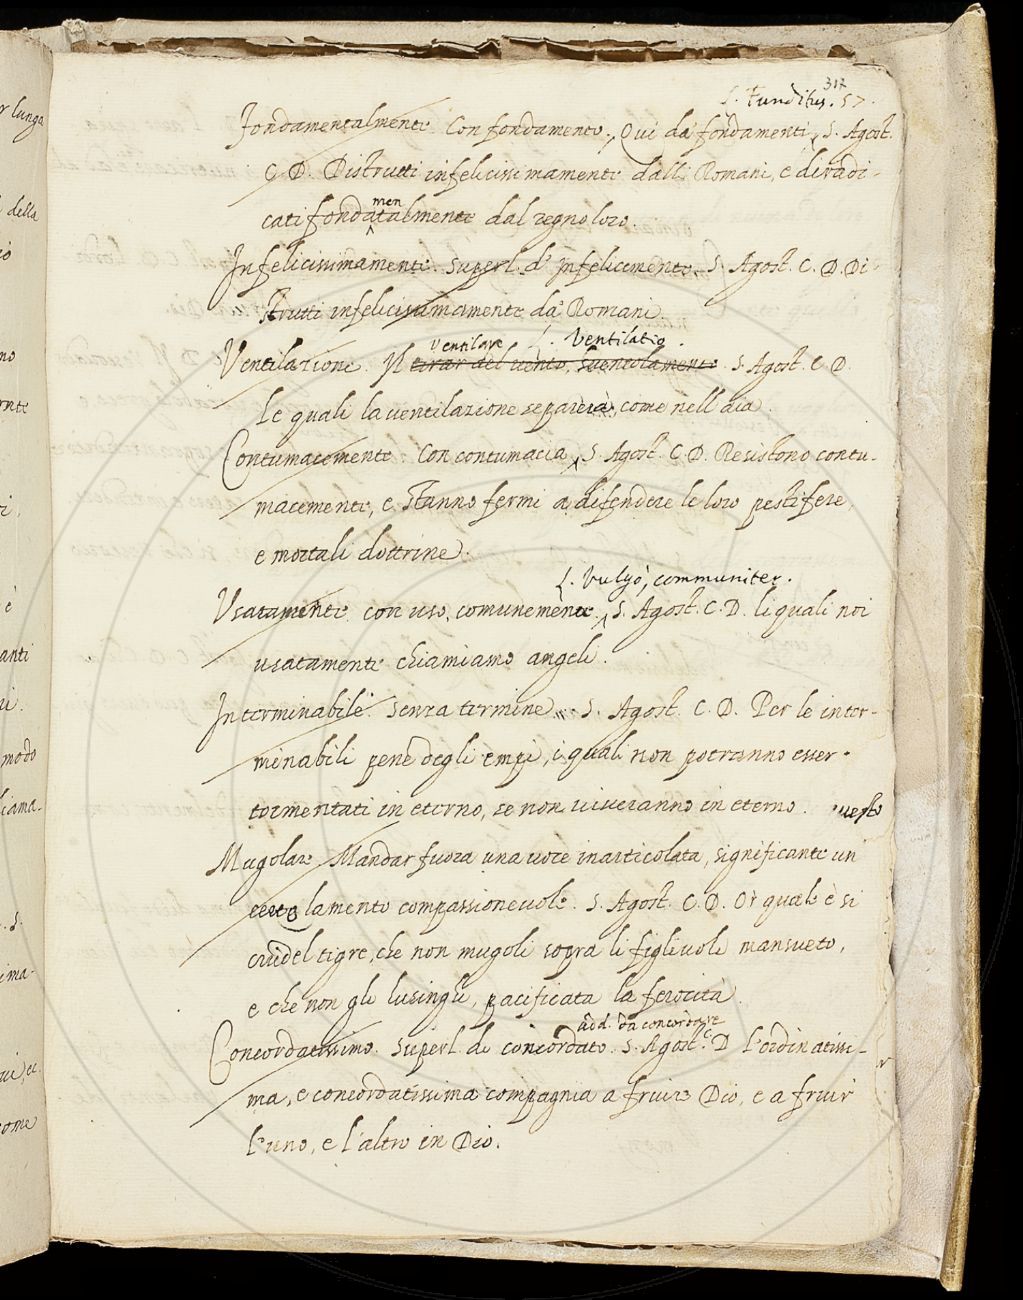 317
L. Funditus. 57.
Fondamentalmente. Con fondamento, Qui da fondamenti, S. Agost.
C. D. Distrutti infelicissimamente dalli Romani, e diradi-
cati fondamentalmente dal regno loro.
Infelicissimamente. Superl. d' Infelicemente. S. Agost. C. D. Di-
strutti infelicissimamente da' Romani.
Ventilare L. Ventilatio.
Ventilazione. Il tirar del vento, sventolamento. S. Agost. C. D.
Le quali la ventilazione separerà, come nell' aia.
Contumacemente. Con contumacia, S. Agost. C. D. Resistono contu-
macemente, e stanno fermi a difendere le loro pestifere,
e mortali dottrine.
L. Vulgò, communiter.
Usatamente. con uso, comunemente. S. Agost. C. D. li quali noi
usatamente chiamiamo angeli.
Interminabile. Senza termine. S. Agost. C. D. Per le inter-
minabili pene degli empi, i quali non potranno esser
tormentati in eterno, se non viveranno in eterno.
Mugolare. Mandar fuora una voce inarticolata, significante un
certo lamento compassionevole. S. Agost. C. D. Or quale è si
crudel tigre, che non mugoli sopra li figlivoli mansueto,
e che non gli lusinghi, pacificata la ferocità.
add. da concordare
Concordatissimo. Superl. di concordato. S. Agost. C. D. L'ordinatissi-
ma, e concordatissima compagnia a fruire Dio, e a fruir
l'uno, e l'altro in Dio.
r lunga
della
modo
iama-
ima-
come